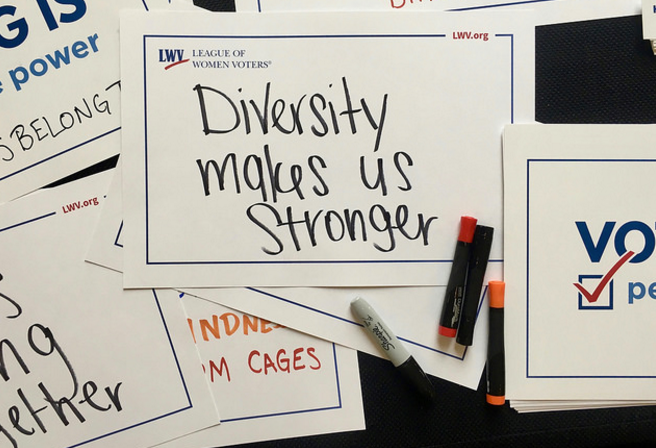 G IS
power
BELONG
LWV.org
LWV LEAGUE OF
WOMEN VOTERS®
Diversity
makes us
Stronger
LWV.org
ng
gether
INDNES
OM CAGES
Sharpie
VOT
pe